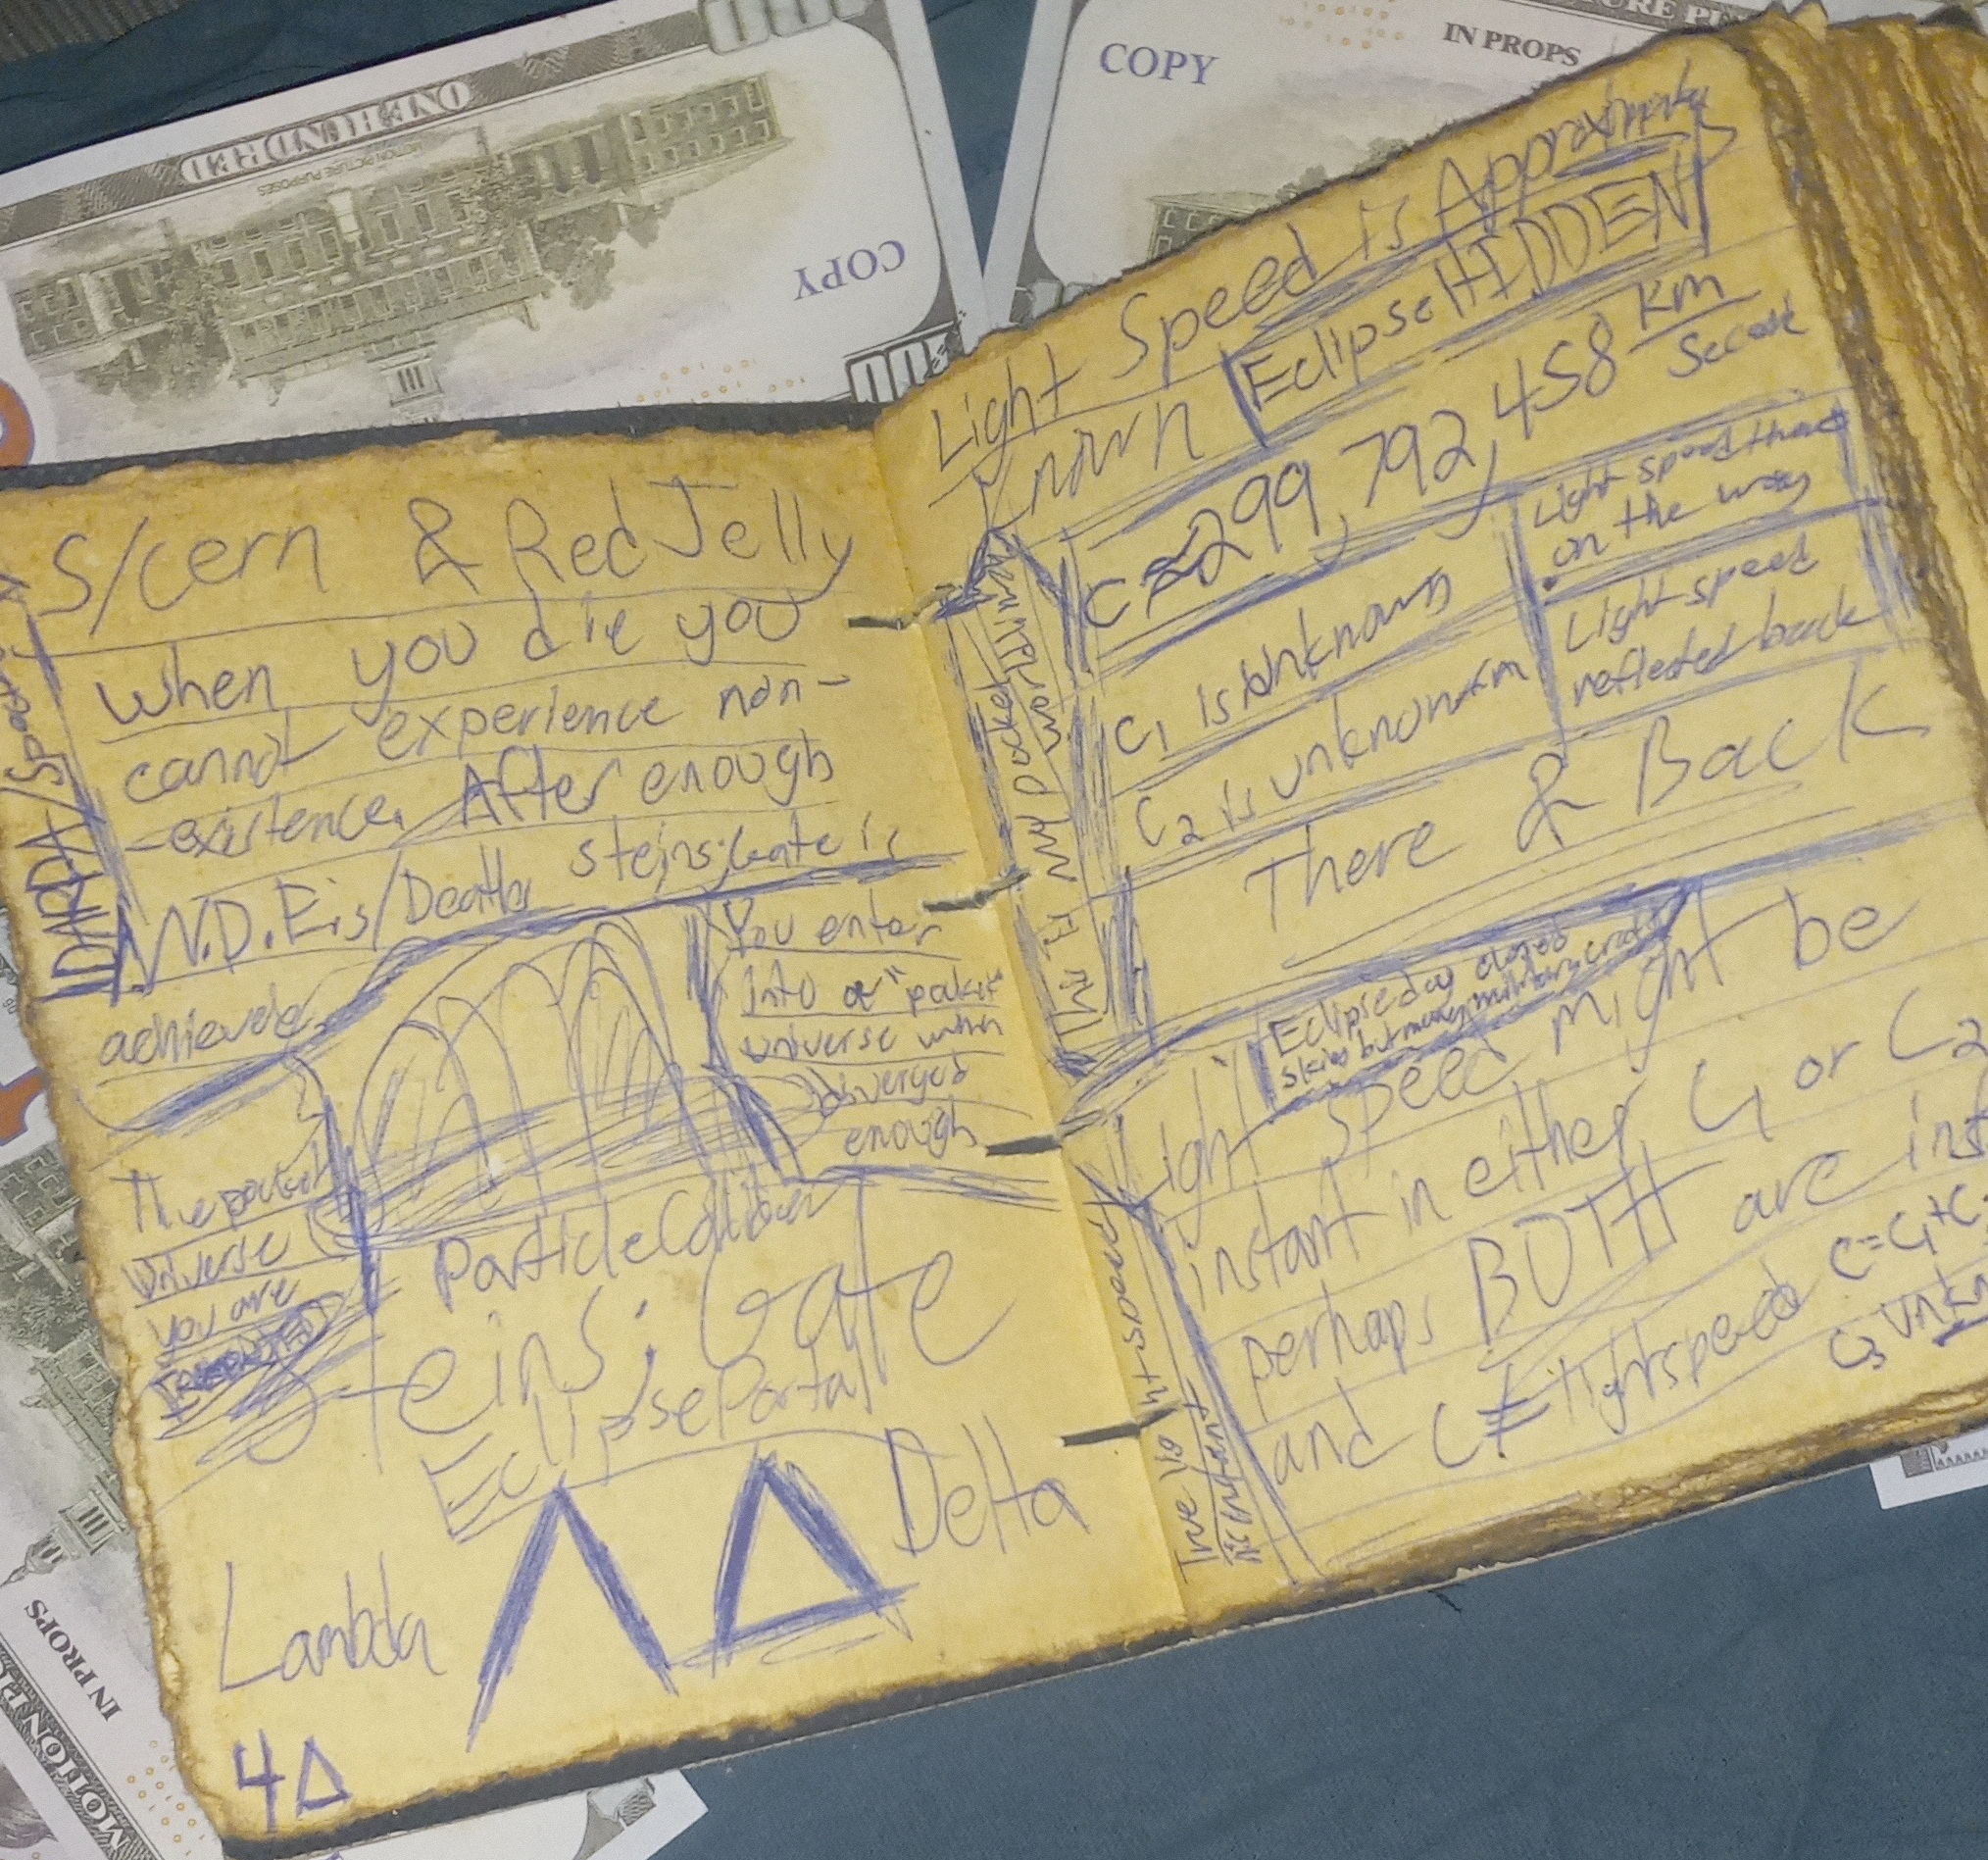 ONE HUNDRED
MOTION PICTURE PURPOSES
COPY
100
COPY
IN PROPS
S/cern & Red Jelly
When you die you
cannot experience non-
-existence. After enough
N.D.E.is/Death steins;Gate is
achieved.
DARPA/
You enter
into a "pocket
universe when
diverged
enough
The pocket
universe
you are
Particle Collider
Steins;Gate
Eclipse Portal
Lambda Λ Δ Delta
4Δ
Light Speed is Approximately
Known Eclipse HIDDEN
C ≈ 299,792,458 km
Second
C₁ is unknown
Light speed there
on the way
C₂ is unknown
Light speed
reflected back
There & Back
IN MY pocket
world line
Eclipse day closed
skies but many military craft
Light speed might be
instant in either C₁ or C₂
perhaps BOTH are inst
and C ≠ lightspeed C=C₁+C
C₃ Unkn
True light speed
is instant
IN PROPS
MOTION